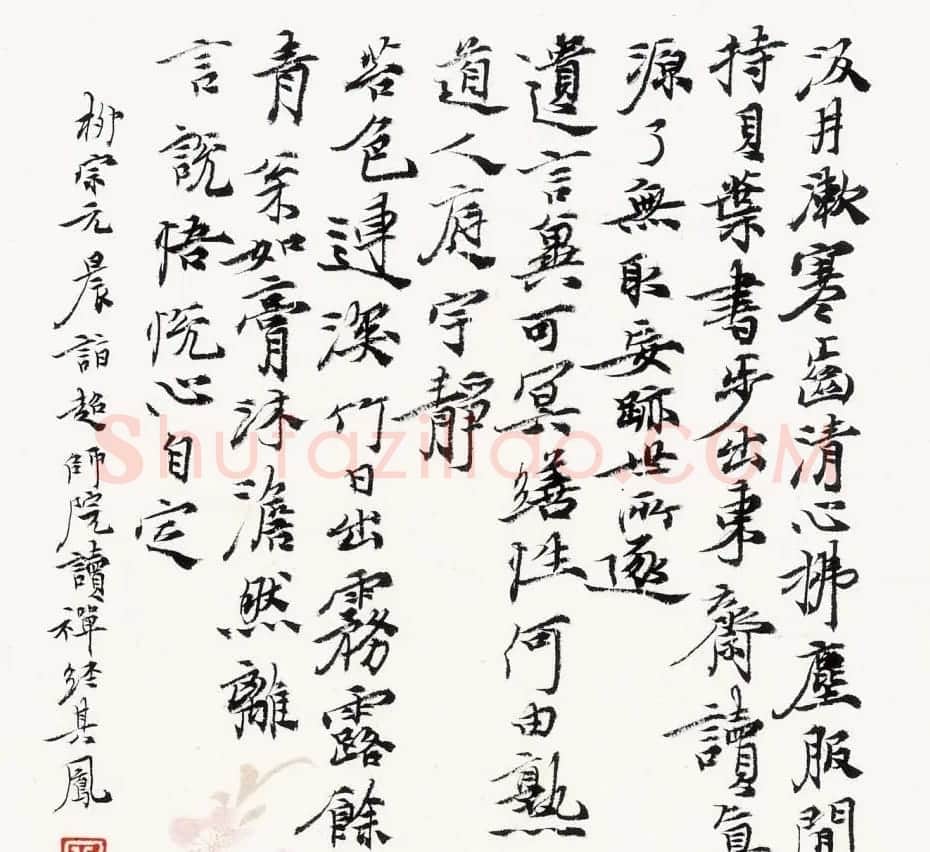 汲井漱寒齒清心拂塵服閒
持貝葉書步出東齋讀真
源了無取妄跡世所逐
遺言冀可冥繕性何由熟
道人庭宇靜
苔色連深竹日出霧露餘
青松如膏沐澹然離
言說悟悅心自定
柳宗元晨詣超師院讀禪經其鳳
Shufaziliao.COM